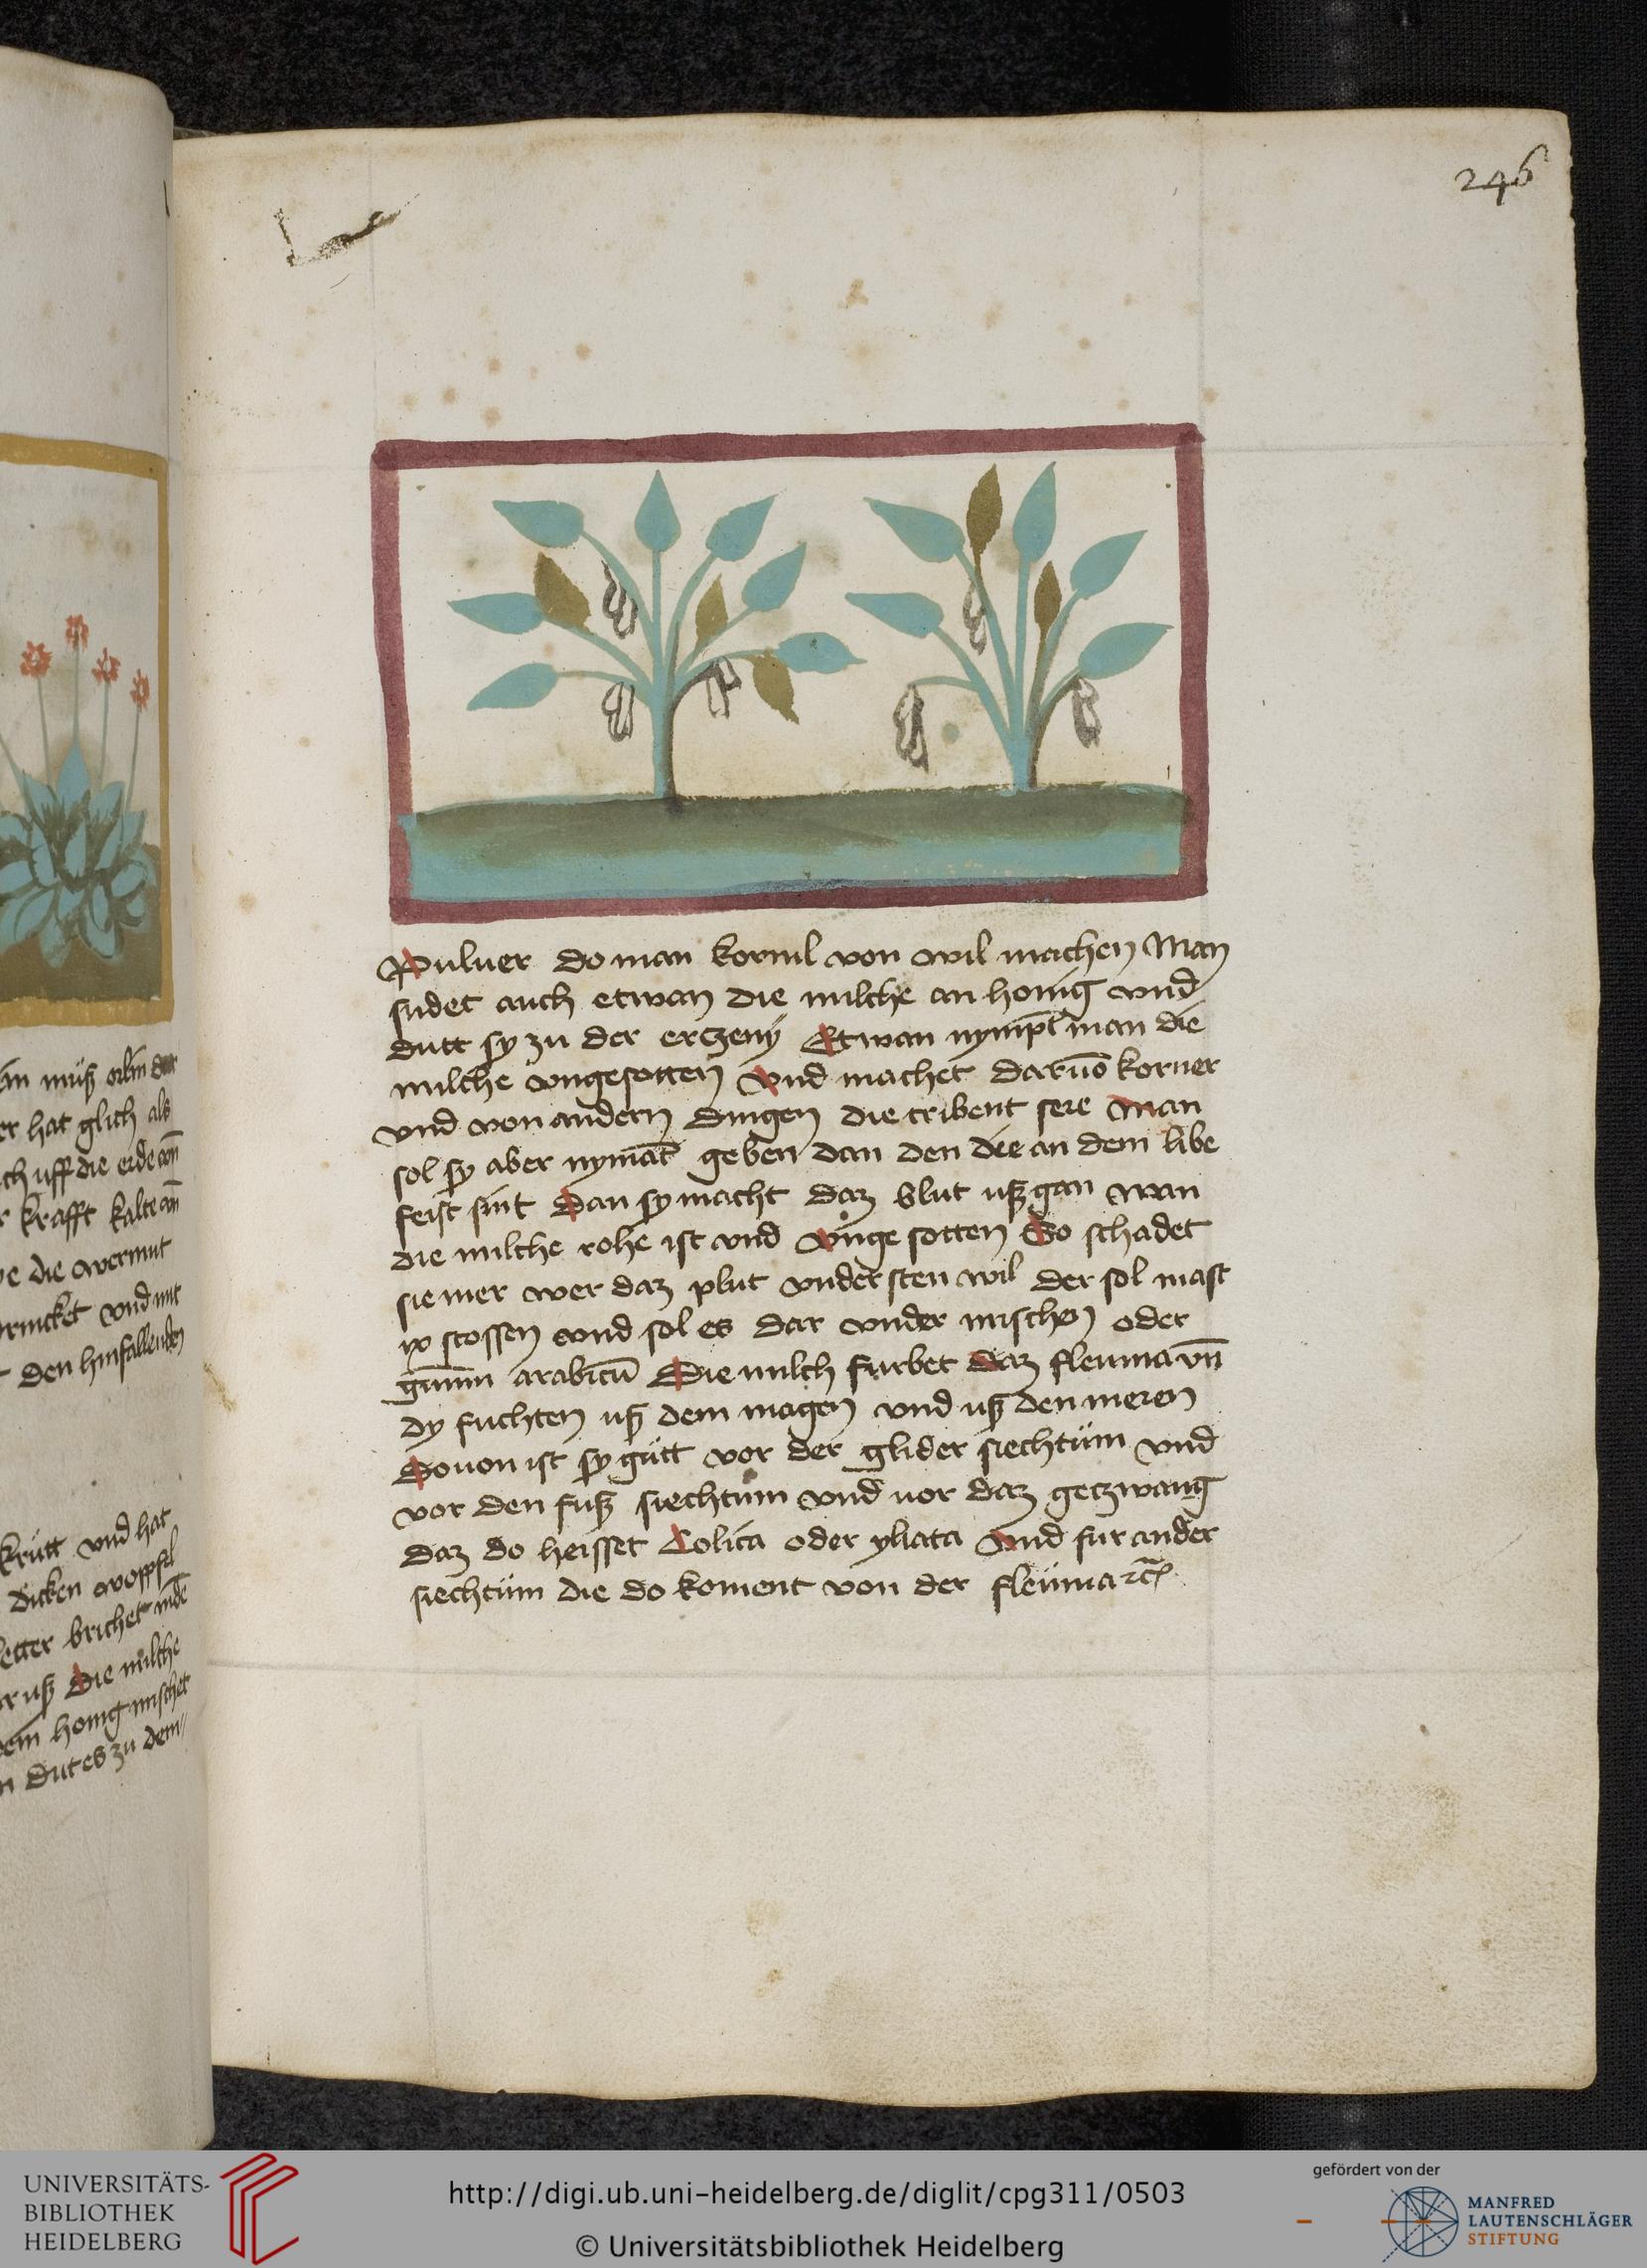 246
Pulver do man kornil von wil machen Man
sudet auch etwan die milche an honig vnd
dutt sy zu der erczeny Etwan nympt man die
milche vngesotten Vnd machet daruō korner
vnd von andern dingen die tribent sere Man
sol sy aber nymāt geben dan den die an dem libe
feist sint Dan sy macht daz blut uß gan wan
die milche rohe ist vnd vnge sotten So schadet
sie mer wer daz plut vnder sten wil der sol mast
ix stossen vnd sol es dar vnder mischen oder
gummi arabicū Die milch furbet daz fleuma vn̄
dy fuchten uß dem magen vnd uß den meren
Douon ist sy gutt vor der glider siechtüm vnd
vor den fuß siechtum vnd uor daz geczwang
daz do heisset Colica oder yliata Vnd fur ander
siechtüm die do koment von der fleüma
er hat glich als
ch uff die erde
krafft kalte
die wermut
trincket vnd mit
den hinfallenden
krütt vnd hat
dicken
brichet
uß Die milche
honig mischet
dut es zu dem
UNIVERSITÄTS-
BIBLIOTHEK
HEIDELBERG
http://digi.ub.uni-heidelberg.de/diglit/cpg311/0503
© Universitätsbibliothek Heidelberg
gefördert von der
MANFRED
LAUTENSCHLÄGER
STIFTUNG